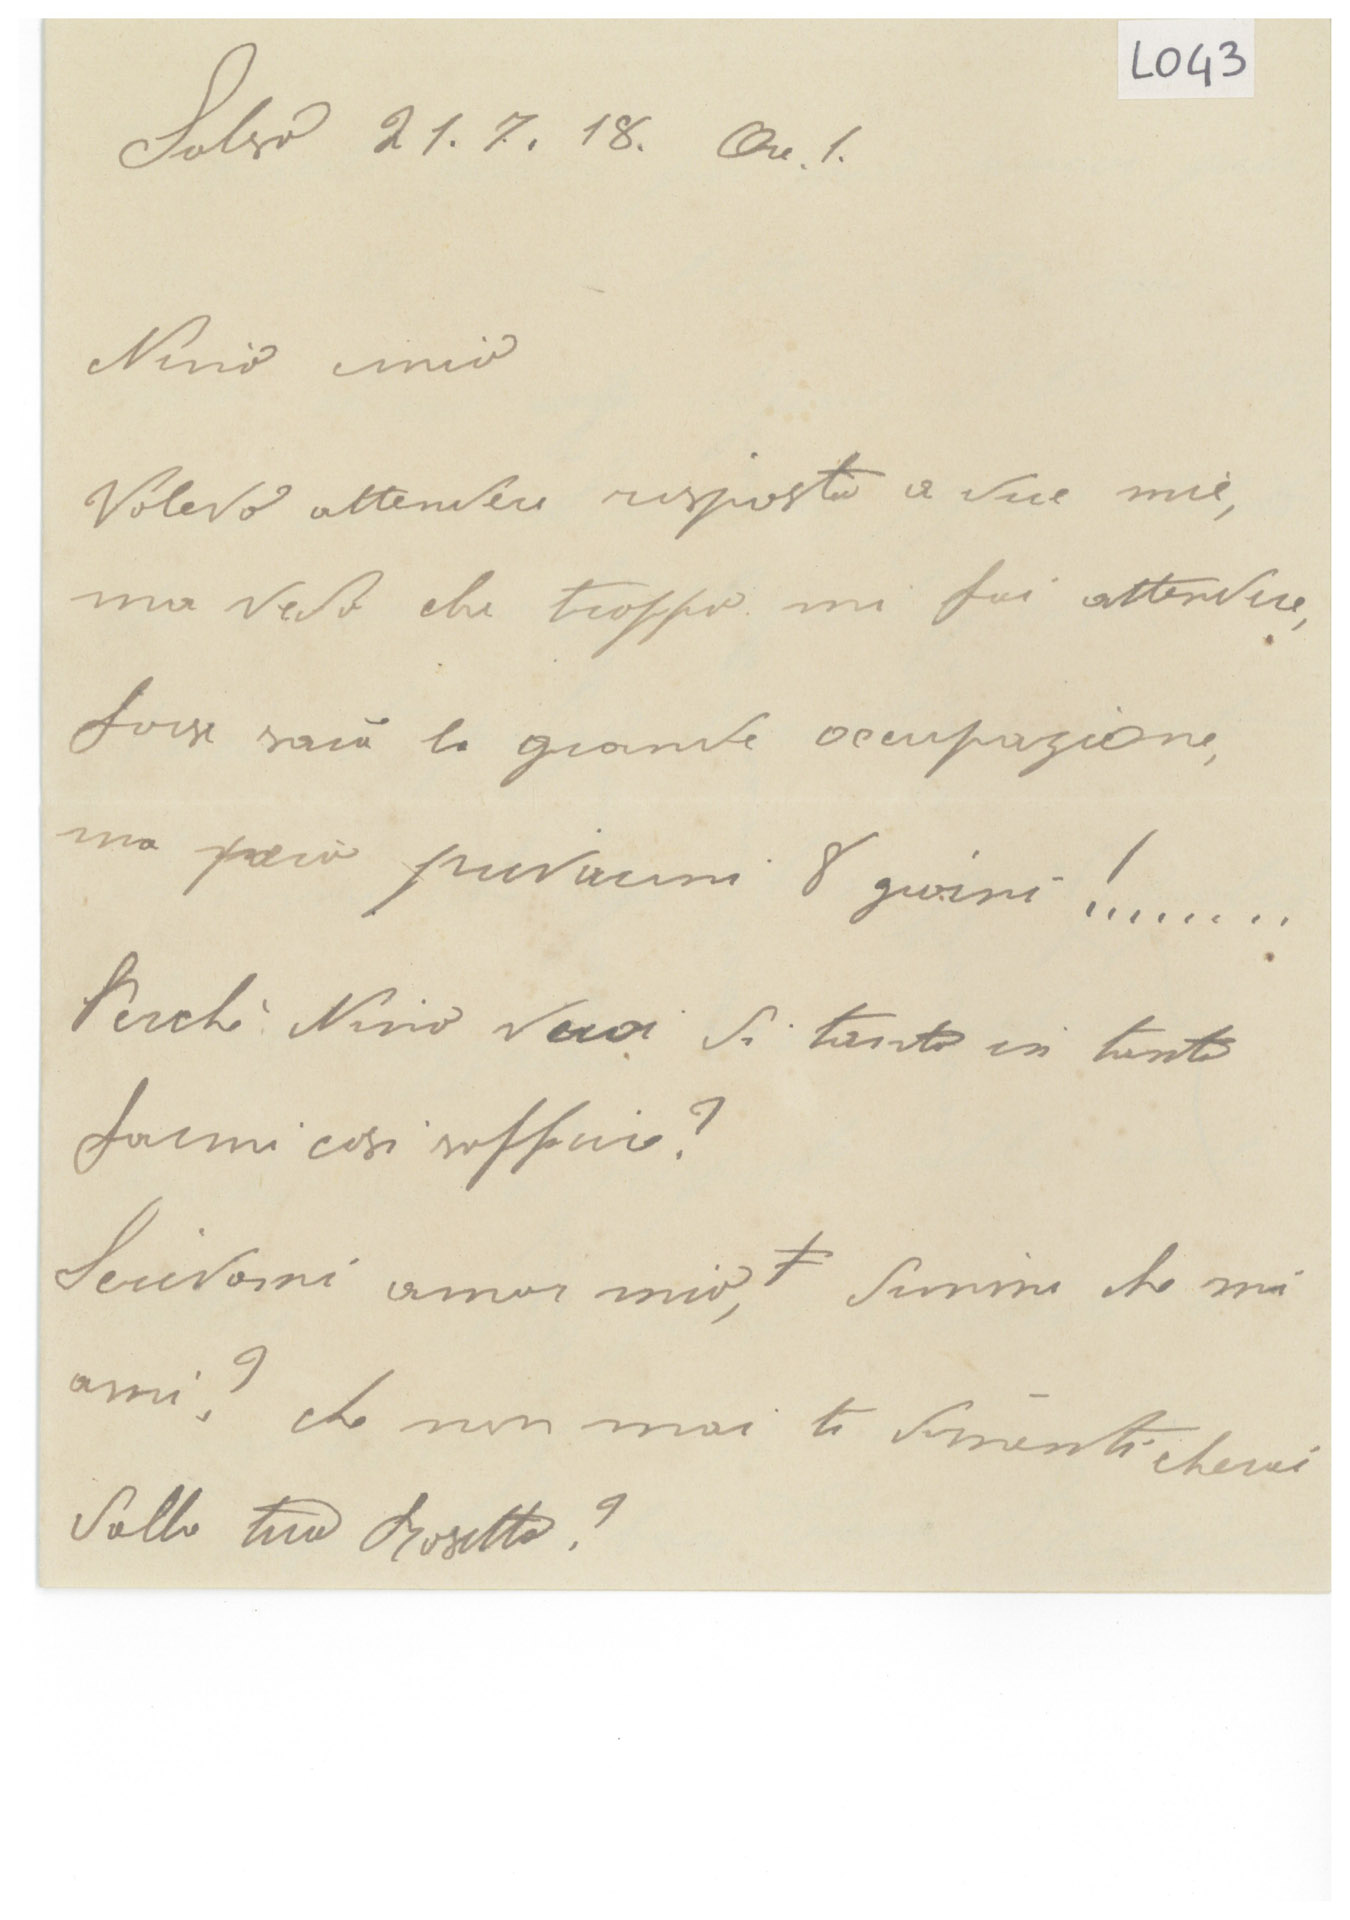 L043
Salso 21.7.18. Ore.1.
Nino mio
Volevo attendere risposta a due mie,
ma vedo che troppo mi fai attendere,
forse sarà la grande occupazione,
ma però privarmi 8 giorni !........
Perchè Nino vuoi di tanto in tanto
farmi così soffrire?
Scrivimi amor mio, dimmi che mi
ami? che non mai ti dimenticherai
della tua Rosetta?